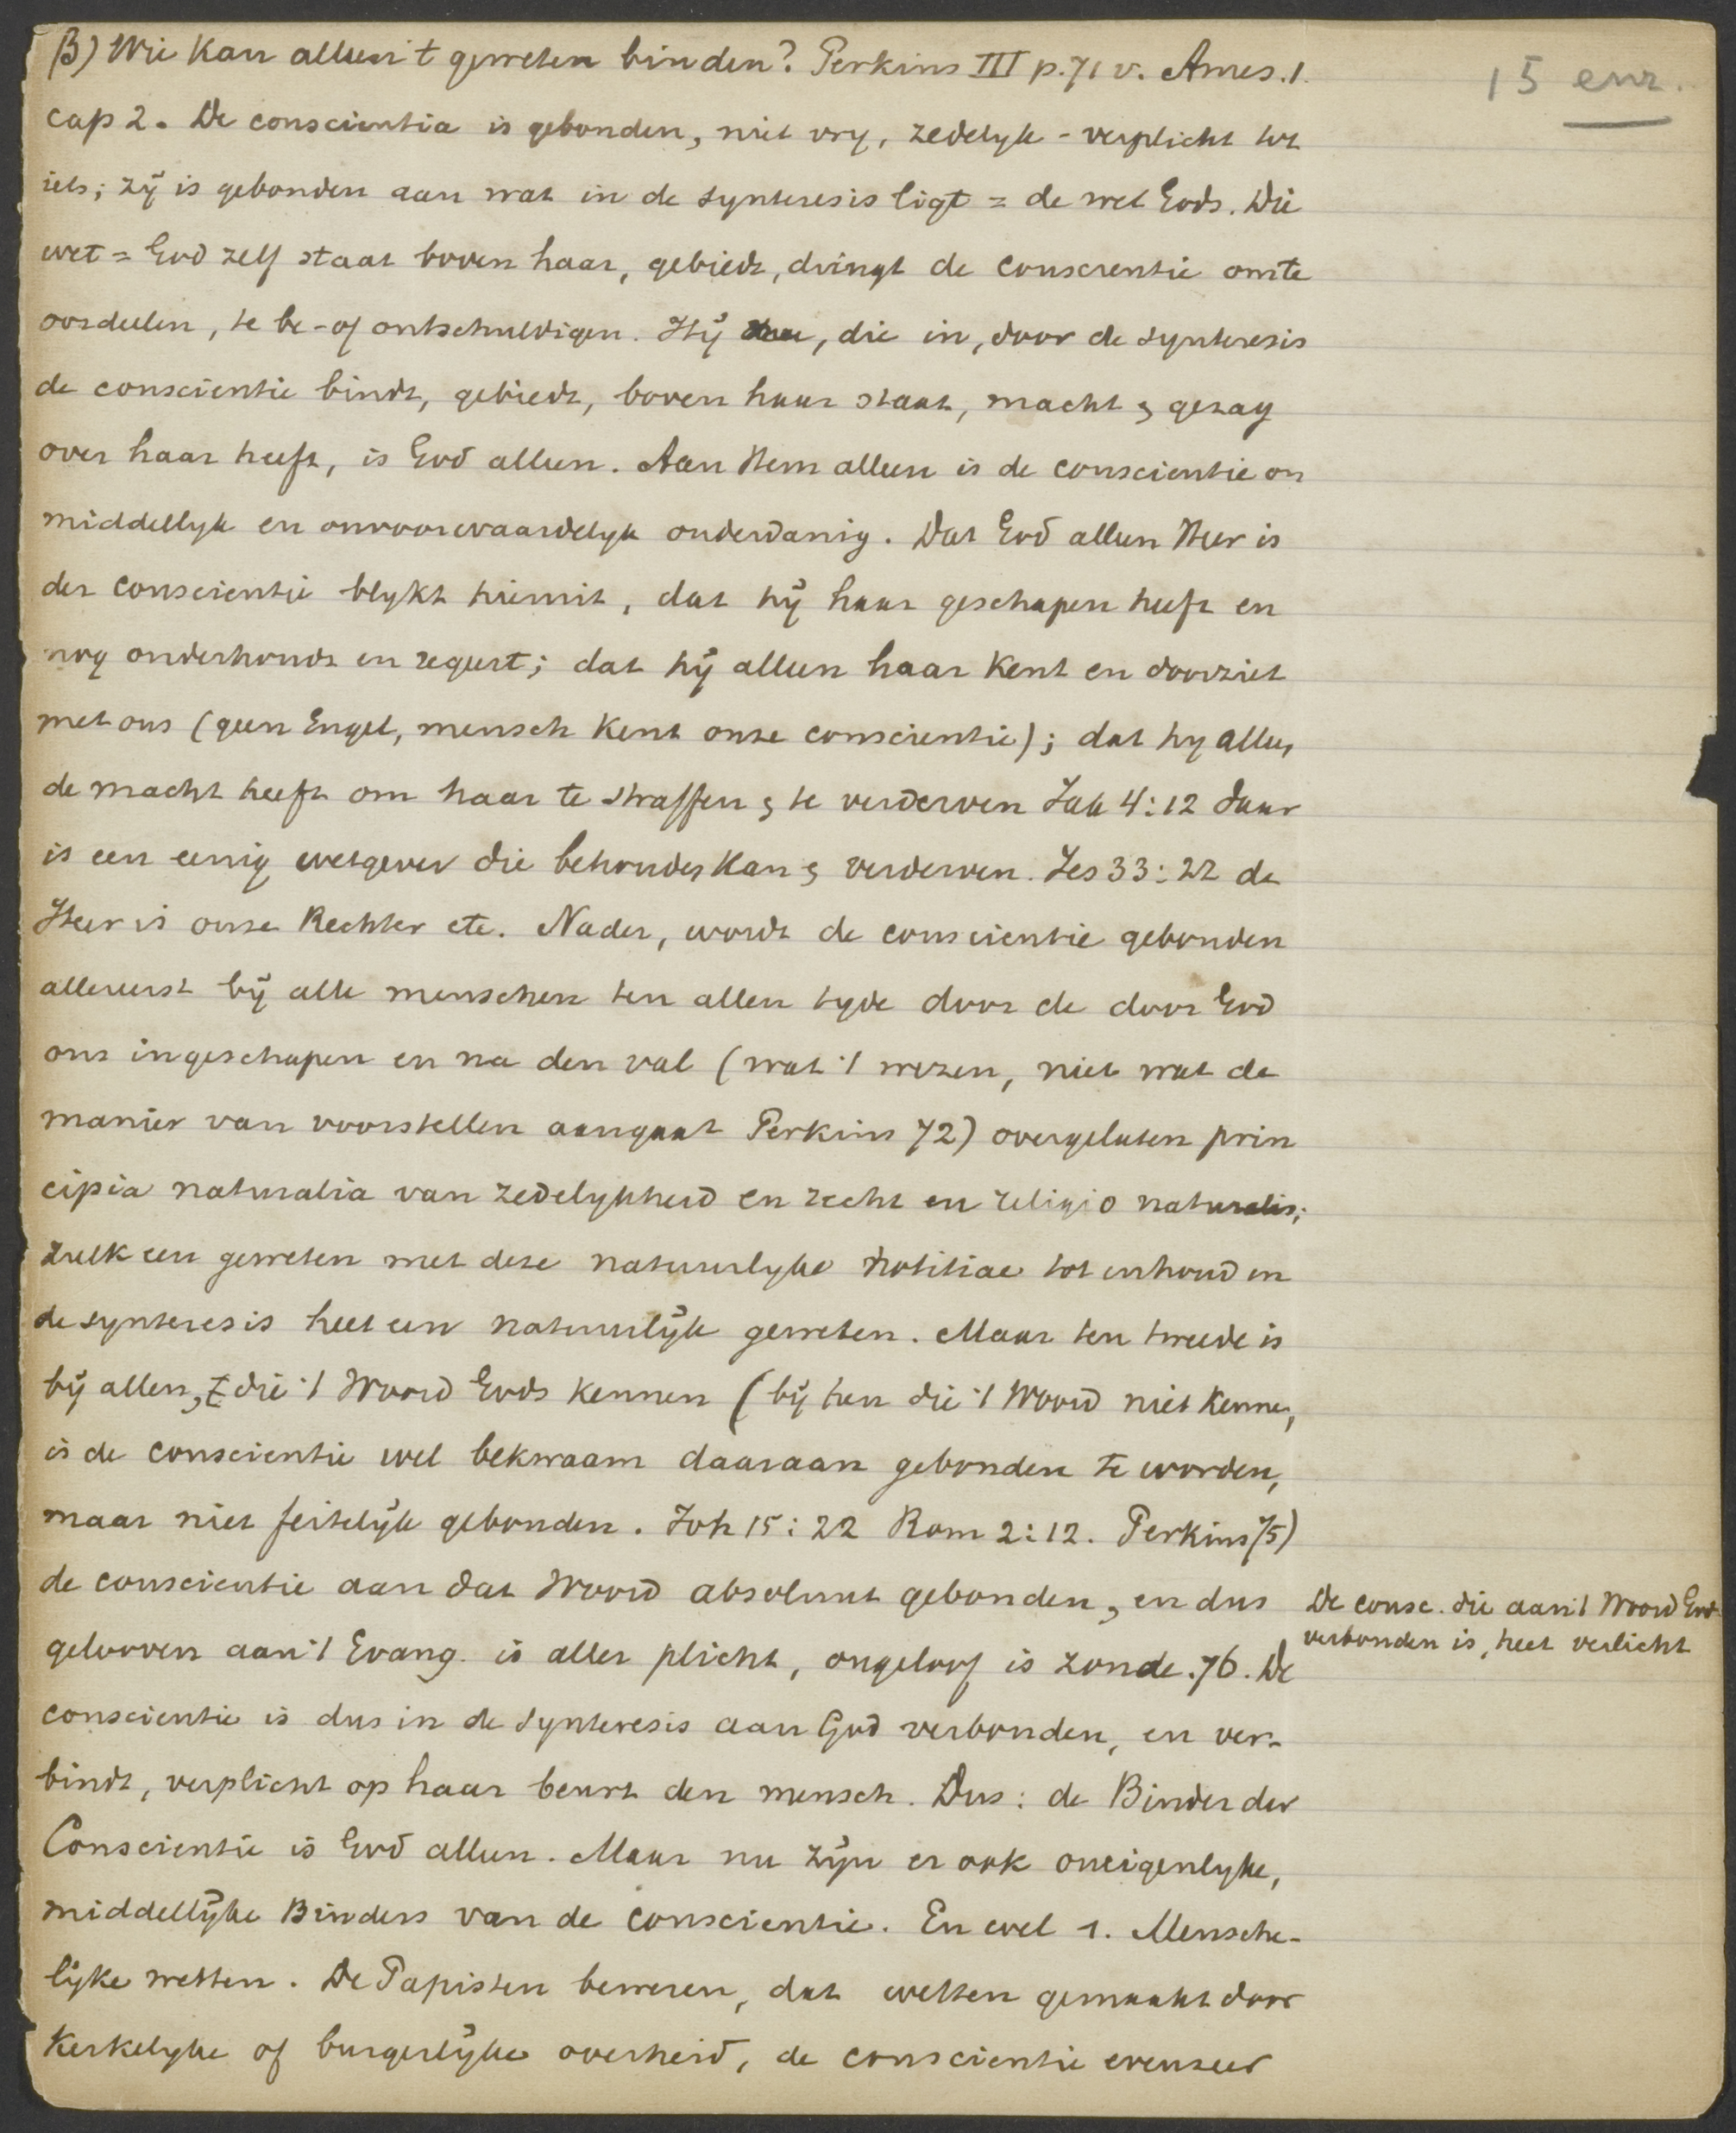 β) Wie kan alleen 't geweten binden? Perkins III p. 71 v. Ames. 1.
15 enz.
cap 2. De conscientia is gebonden, niet vry, zedelyk-verplicht tot
iets; zij is gebonden aan wat in de synteresis ligt = de wet Gods. Die
wet = God zelf staat boven haar, gebiedt, dringt de conscientie om te
oordeelen, te be- of ontschuldigen. Hij, die in, door de synteresis
de conscientie bindt, gebiedt, boven haar staat, macht & gezag
over haar heeft, is God alleen. Aan Hem alleen is de conscientie on
middellyk en onvoorwaardelyk onderdanig. Dat God alleen Heer is
der conscientie blykt hieruit, dat hij haar geschapen heeft en
nog onderhoudt en regeert; dat hij alleen haar kent en doorziet
met ons (geen Engel, mensch kent onze conscientie); dat hy alleen
de macht heeft om haar te straffen & te verderven Jak 4:12 daar
is een eenig wetgever die behouden kan & verderven. Jes 33:22 de
Heer is onze Rechter etc. Nader, wordt de conscientie gebonden
allereerst bij alle menschen ten allen tyde door de door God
ons ingeschapen en na den val (wat 't wezen, niet wat de
manier van voorstellen aangaat Perkins 72) overgelaten prin
cipia naturalia van zedelykheid en recht en religio naturalis;
zulk een geweten met deze natuurlyke notitiae tot inhoud in
de synteresis heet een natuurlijk geweten. Maar ten tweede is
bij allen, die 't Woord Gods kennen (bij hen die 't Woord niet kennen,
is de conscientie wel bekwaam daaraan gebonden te worden,
maar niet feitelijk gebonden. Joh 15:22 Rom 2:12. Perkins 75)
de conscientie aan dat Woord absoluut gebonden, en dus
gelooven aan 't Evang. is aller plicht, ongeloof is zonde. 76. De
De consc. die aan 't Woord Gods
verbonden is, heet verlicht
conscientie is dus in de synteresis aan God verbonden, en ver-
bindt, verplicht op haar beurt den mensch. Dus: de Binder der
Conscientie is God alleen. Maar nu zijn er ook oneigenlyke,
middellijke Binders van de conscientie. En wel 1. Mensche-
lijke wetten. De Papisten beweren, dat wetten gemaakt door
kerkelyke of burgerlijke overheid, de conscientie evenzeer